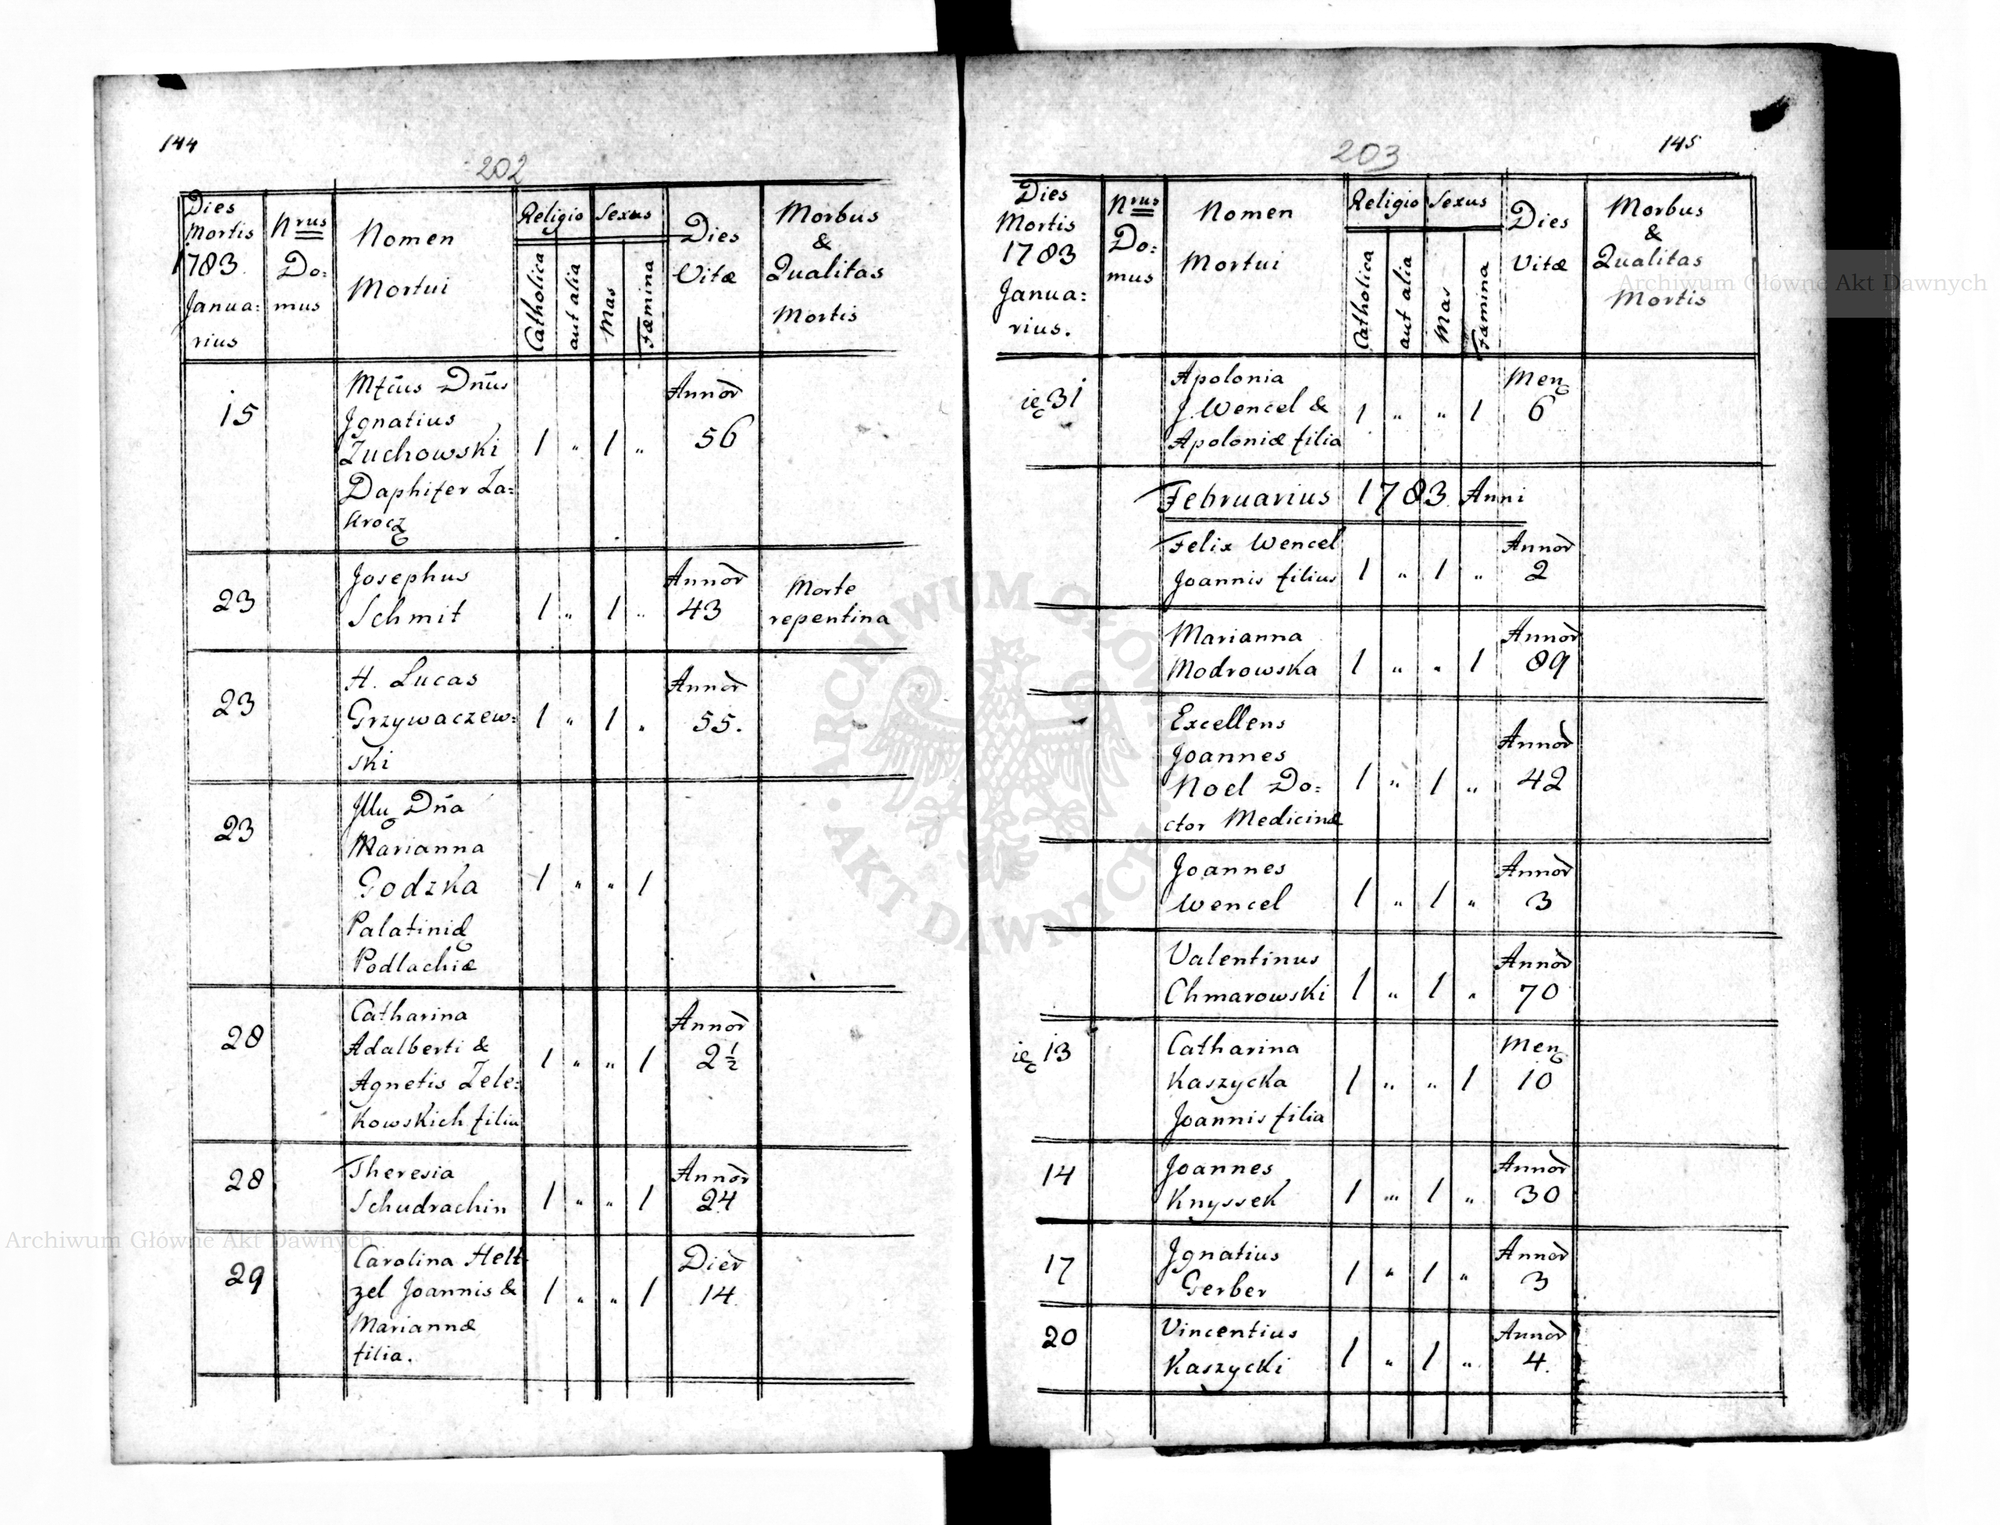 144
202
Dies
Mortis
1783.
Janua:
rius
Nrus
Do:
mus
Nomen
Mortui
Religio
Catholica
aut alia
Sexus
Mas
Fæmina
Dies
Vitæ
Morbus
&
Qualitas
Mortis
15
Dnūs
Ignatius
Zuchowski
Daphifer Za:
1 " 1 "
Annor
56
23
Josephus
Schmit
1 " 1 "
Annor
43
Morte
repentina
23
H. Lucas
Grzywaczew:
ski
1 " 1 "
Annor
55.
23
Dña
Marianna
Godzka
Palatinid
Podlachiæ
1 " " 1
28
Catharina
Adalberti &
Agnetis Zele:
kowskich filia
1 " " 1
Annor
2 1/2
28
Theresia
Schudrachin
1 " " 1
Annor
24
29
Carolina Helt
zel Joannis &
Mariannæ
filia.
1 " " 1
Dier
14
203
145
Dies
Mortis
1783
Janua:
rius.
Nrus
Do:
mus
Nomen
Mortui
Religio
Catholica
aut alia
Sexus
Mas
Fæmina
Dies
Vitæ
Morbus
&
Qualitas
Mortis
31
Apolonia
J. Wencel &
Apoloniæ filia
1 " " 1
Men
6
Februarius 1783 Anni
Felix Wencel
Joannis filius
1 " 1 "
Annor
2
Marianna
Modrowska
1 " " 1
Annor
89
Excellens
Joannes
Noel Do:
ctor Medicinæ
1 " 1 "
Annor
42
Joannes
Wencel
1 " 1 "
Annor
3
Valentinus
Chmarowski
1 " 1 "
Annor
70
13
Catharina
Kaszycka
Joannis filia
1 " " 1
Men
10
14
Joannes
Knyssek
1 " 1 "
Annor
30
17
Ignatius
Gerber
1 " 1 "
Annor
3
20
Vincentius
Kaszycki
1 " 1 "
Annor
4.
Archiwum Główne Akt Dawnych
Archiwum Główne Akt Dawnych
ARCHIWUM GŁÓWNE
AKT DAWNYCH